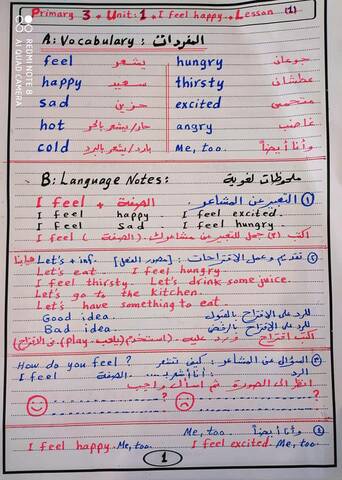 Primary 3 + Unit: 1 + I feel happy + Lesson (1)
A: Vocabulary : المفردات
feel يشعر hungry جوعان
happy سعيد thirsty عطشان
sad حزين excited متحمس
hot حار/يشعر بالحر angry غاضب
cold بارد/يشعر بالبرد Me, too. وأنا أيضاً
B: Language Notes: ملحوظات لغوية
I feel + الصفة ① التعبير عن المشاعر
I feel happy. I feel excited.
I feel sad I feel hungry.
اكتب (٣) جمل للتعبير عن مشاعرك. (الصفة I feel)
② تقديم وعمل الاقتراحات : [مصدر الفعل] Let's + inf.
Let's eat. I feel hungry.
I feel thirsty. Let's drink some juice.
Let's go to the kitchen.
Let's have something to eat.
Good idea. للرد على الاقتراح بالقبول
Bad idea للرد على الاقتراح بالرفض
اكتب اقتراح ورد عليه. (استخدم) (يلعب - play)
How do you feel ? كيف تشعر : ③ السؤال عن المشاعر
I feel الصفة أنا أشعر ... الرد :
انظر الى الصورة ثم اسأل واجب
④ وأنا أيضاً Me, too.
I feel happy. Me, too. I feel excited. Me, too.
1
REDMI NOTE 8
AI QUAD CAMERA